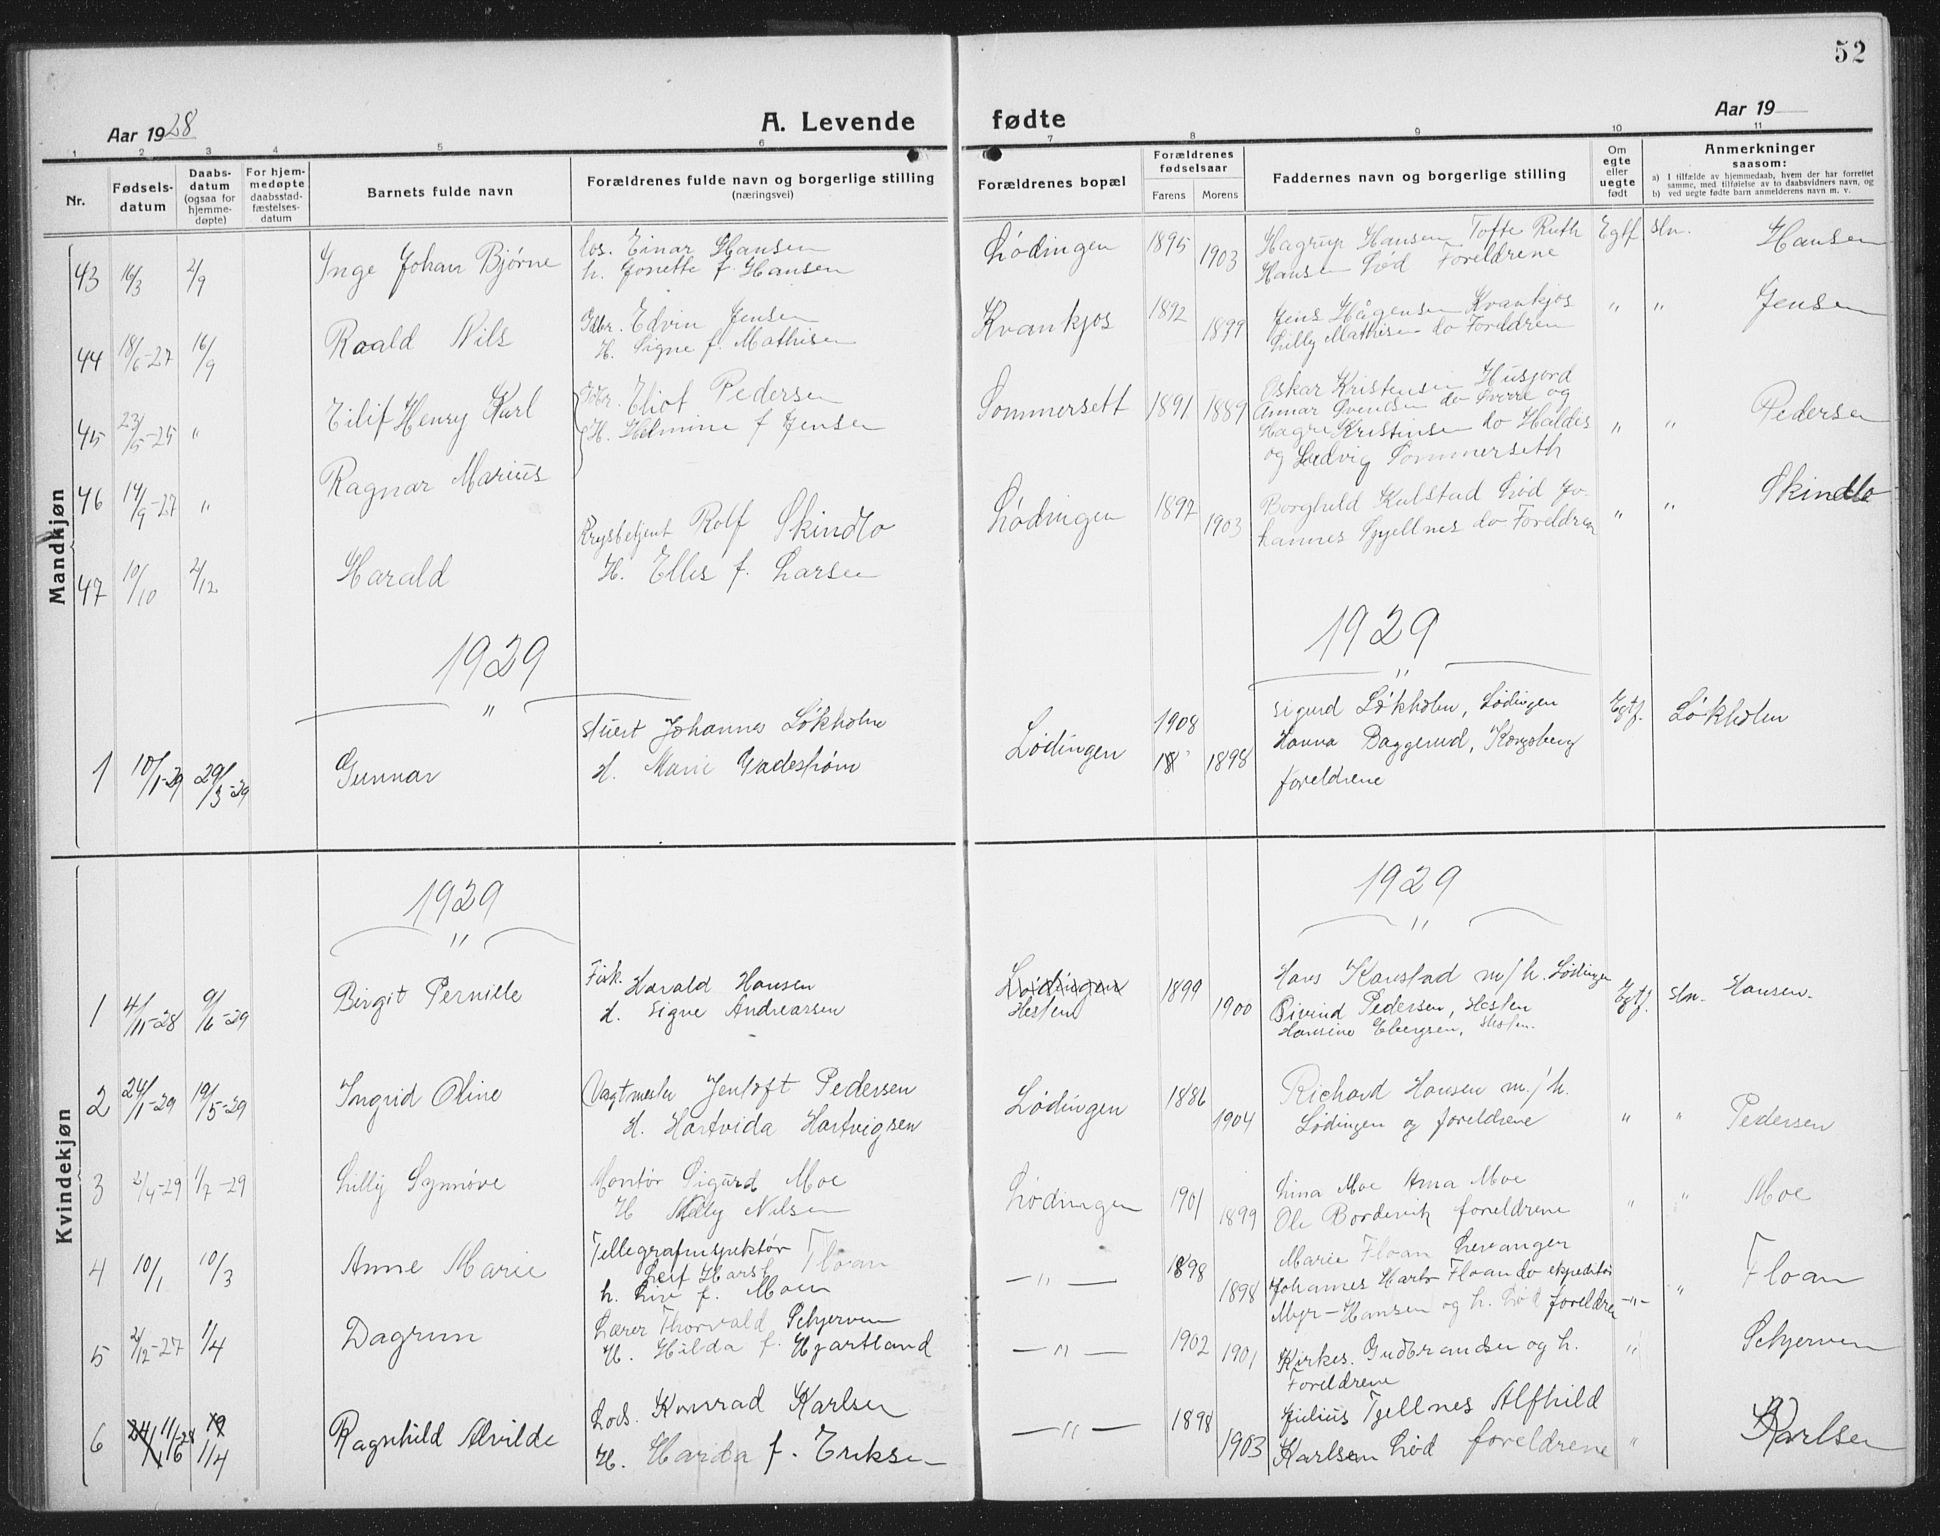 52
Aar 1928
A. Levende fødte
Aar 19
1 2 3 4 5 6 7 8 9 10 11
Nr.
Fødsels-
datum
Daabs-
datum
(ogsaa for
hjemme-
døpte)
For hjem-
medøpte
daabsstad-
fæstelses-
datum
Barnets fulde navn
Forældrenes fulde navn og borgerlige stilling
(næringsvei)
Forældrenes bopæl
Forældrenes
fødselsaar
Farens Morens
Faddernes navn og borgerlige stilling
Om
egte
eller
uegte
født
Anmerkninger
saasom:
a) I tilfælde av hjemmedaab, hvem der har forrettet
samme, med tilføielse av to daabsvidners navn, og
b) ved uegte fødte barn anmelderens navn m. v.
Mandkjøn
43 16/3 2/9 Inge Johan Bjørne
Los. Einar Hansen
h. Jonette f. Hansen
Lødingen 1895 1903
Hagrup Hansen Tofte Ruth
Hansen Lød Foreldrene
Egtf Hn. Hansen
44 18/6-27 16/9 Roald Nils
Gdbr. Edvin Jensen
H. Signe f. Mathisen
Kvankjos 1892 1899
Jens Hågensen Kvankjos
Lilly Mathisen do Foreldren
" " Jensen
45 23/5-25 " Eilif Henry Karl
46 14/9-27 " Ragnar Marius
Gdbr. Eliot Pedersen
H. Helmine f Jensen
Sommersett 1891 1889
Oskar Kristensen Husjord
Annar Svendsen do Sverre og
Hagre Kristensen do Haldis
og Ludvig Sommerseth
" " Pedersen
47 10/10 2/12 Harald
Krysbetjent Rolf Skindlo
H. Elles f. Larsen
Lødingen 1897 1903
Borghild Kulstad Lød Jo-
hannes Gjellnes do Foreldren
" " Skindlo
1929 1929
" "
1 10/1-29 29/3-29 Gunnar
Stuert Johannes Løkholm
H. Marie Gadestrøm
Lødingen 1908 18 1898
Sigurd Løkholm, Lødingen
Hanna Baggerud, Kongsberg
foreldrene
Egtf. Løkholm
Kvindekjøn
1929 1929
" "
1 4/11-28 9/6-29 Birgit Pernille
Fisk. Harald Hansen
H. Signe Andreassen
Lødingen
Hesten
1899 1900
Hans Kanstad m/h. Lødingen
Eivind Pedersen, Hesten
Hansine Ebergsen, Hesten.
Egtf. Hn. Hansen.
2 24/1-29 19/5-29 Ingrid Oline
Vagtmester Jentoft Pedersen
H. Hartvida Hartvigsen
Lødingen 1886 1904
Richard Hansen m/h.
Lødingen og foreldrene
" " Pedersen
3 2/4-29 1/7-29 Lilly Synnøve
Montør Sigurd Moe
H Nelly Nilsen
Lødingen 1901 1899
Lina Moe Anna Moe
Ole Bordevik foreldrene
" " Moe
4 10/1 10/3 Anne Marie
Tellegrafinspektør Floan
Leif Harst
h. Liv f. Moen
—"— 1898 1898
Marie Floan Levanger
Johannes Harts Floan do ekspeditør
Myr-Hansen og h. Lød foreldren
-"- " Floan
5 2/12-27 1/4 Dagrun
Lærer Thorvald Schjerven
H. Hilda f. Hjartland
—"— 1902 1901
Kirkes. Gudbrandsen og h.
Foreldrene
" Schjerven
6 24/1 11/6-28 19 1/4 Ragnhild Alvilde
Lods. Konrad Karlsen
H. Harda f. Eriksen
—"— 1898 1903
Julius Tjellnes Alfhild
Karlsen Lød foreldrene
" Karlsen